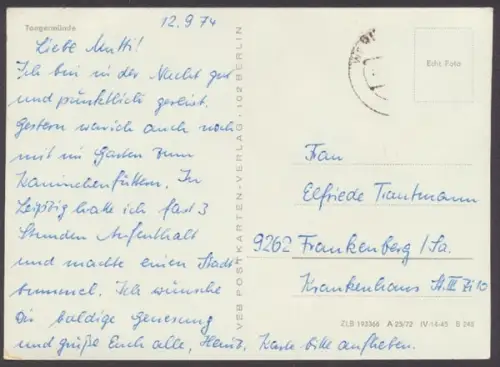 Tangermünde
12.9.74
Liebe Mutti!
Ich bin in der Nacht gut
und pünktlich gereist.
Gestern war ich auch noch
mit im Garten zum
Kaninchenfüttern. In
Leipzig hatte ich fast 3
Stunden Aufenthalt
und machte einen Stadt
bummel. Ich wünsche
Dir baldige Genesung
und grüße Euch alle, Heinz. Karte bitte aufheben.
VEB POSTKARTEN-VERLAG · 102 BERLIN
Echt Foto
Frau
Elfriede Trautmann
9262 Frankenberg/Sa.
Krankenhaus St. III Zi 10
A 23/72 IV-14-45